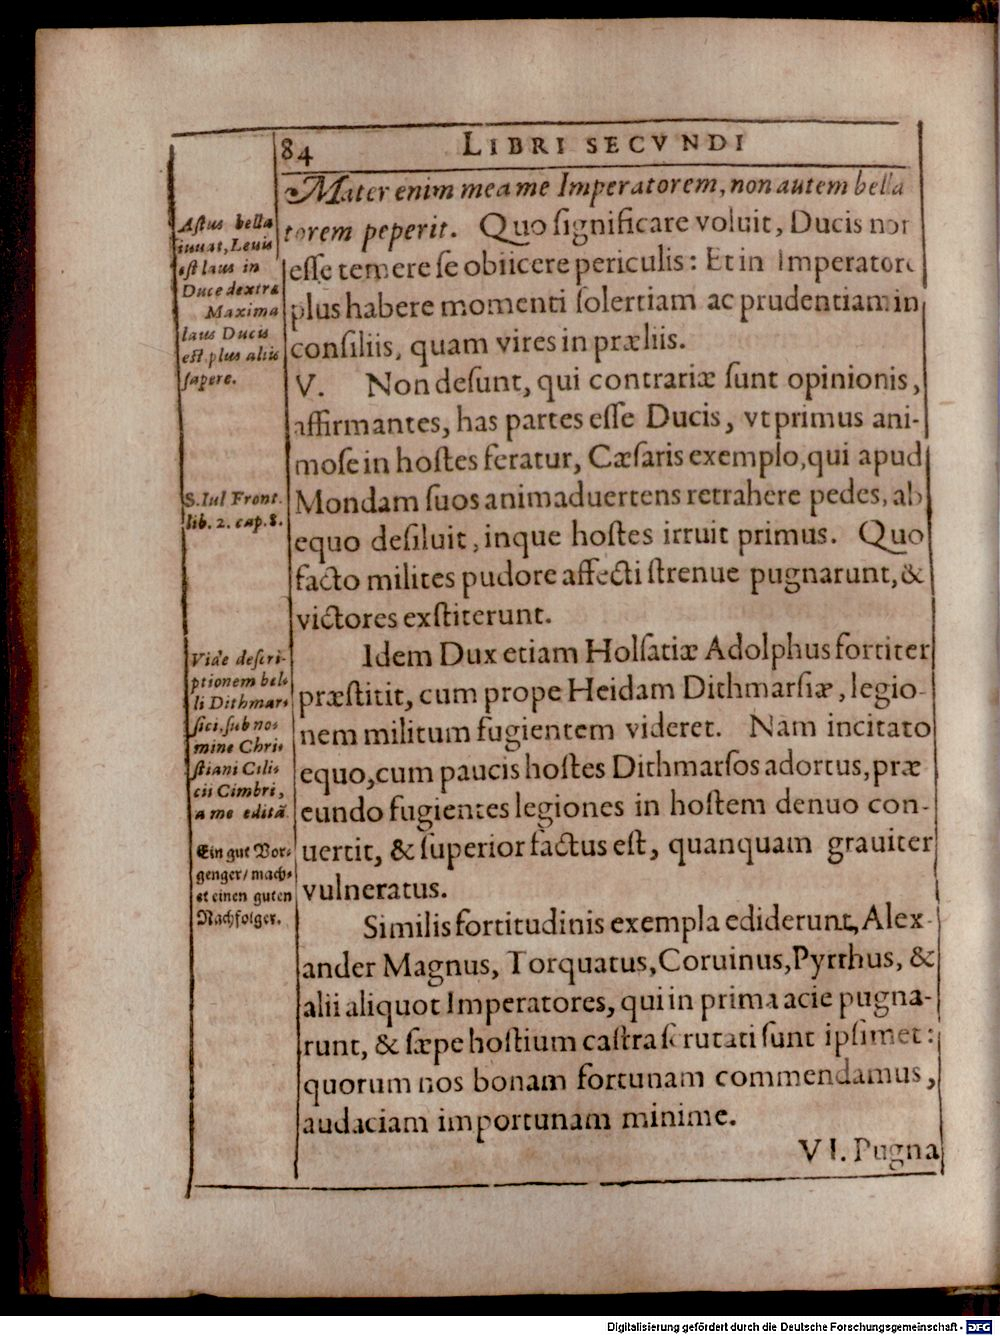 84 LIBRI SECVNDI
Mater enim mea me Imperatorem, non autem bella
torem peperit. Quo ſignificare voluit, Ducis non
eſſe temere ſe obiicere periculis: Et in Imperatore
plus habere momenti ſolertiam ac prudentiam in
conſiliis, quam vires in præliis.
V. Non deſunt, qui contrariæ ſunt opinionis,
affirmantes, has partes eſſe Ducis, vt primus ani-
moſe in hoſtes feratur, Cæſaris exemplo, qui apud
Mondam ſuos animaduertens retrahere pedes, ab
equo deſiluit, inque hoſtes irruit primus. Quo
facto milites pudore affecti ſtrenue pugnarunt, &
victores exſtiterunt.
Idem Dux etiam Holſatiæ Adolphus fortiter
præſtitit, cum prope Heidam Dithmarſiæ, legio-
nem militum fugientem videret. Nam incitato
equo, cum paucis hoſtes Dithmarſos adortus, præ
eundo fugientes legiones in hoſtem denuo con-
uertit, & ſuperior factus eſt, quanquam grauiter
vulneratus.
Similis fortitudinis exempla ediderunt, Alex-
ander Magnus, Torquatus, Coruinus, Pyrrhus, &
alii aliquot Imperatores, qui in prima acie pugna-
runt, & ſæpe hoſtium caſtra ſcrutati ſunt ipſimet:
quorum nos bonam fortunam commendamus,
audaciam importunam minime.
VI. Pugna
Aſtus bella
iuuat, Leuis
eſt laus in
Duce dextra
Maxima
laus Ducis
eſt plus aliis
ſapere.
S. Iul Front.
lib. 2. cap. 8.
Vide deſcri-
ptionem bel-
li Dithmar-
ſici, ſub no-
mine Chri-
ſtiani Cili-
cii Cimbri,
a me editã
Ein gut Vor-
genger/ mach-
et einen guten
Nachfolger.
Digitalisierung gefördert durch die Deutsche Forschungsgemeinschaft - DFG